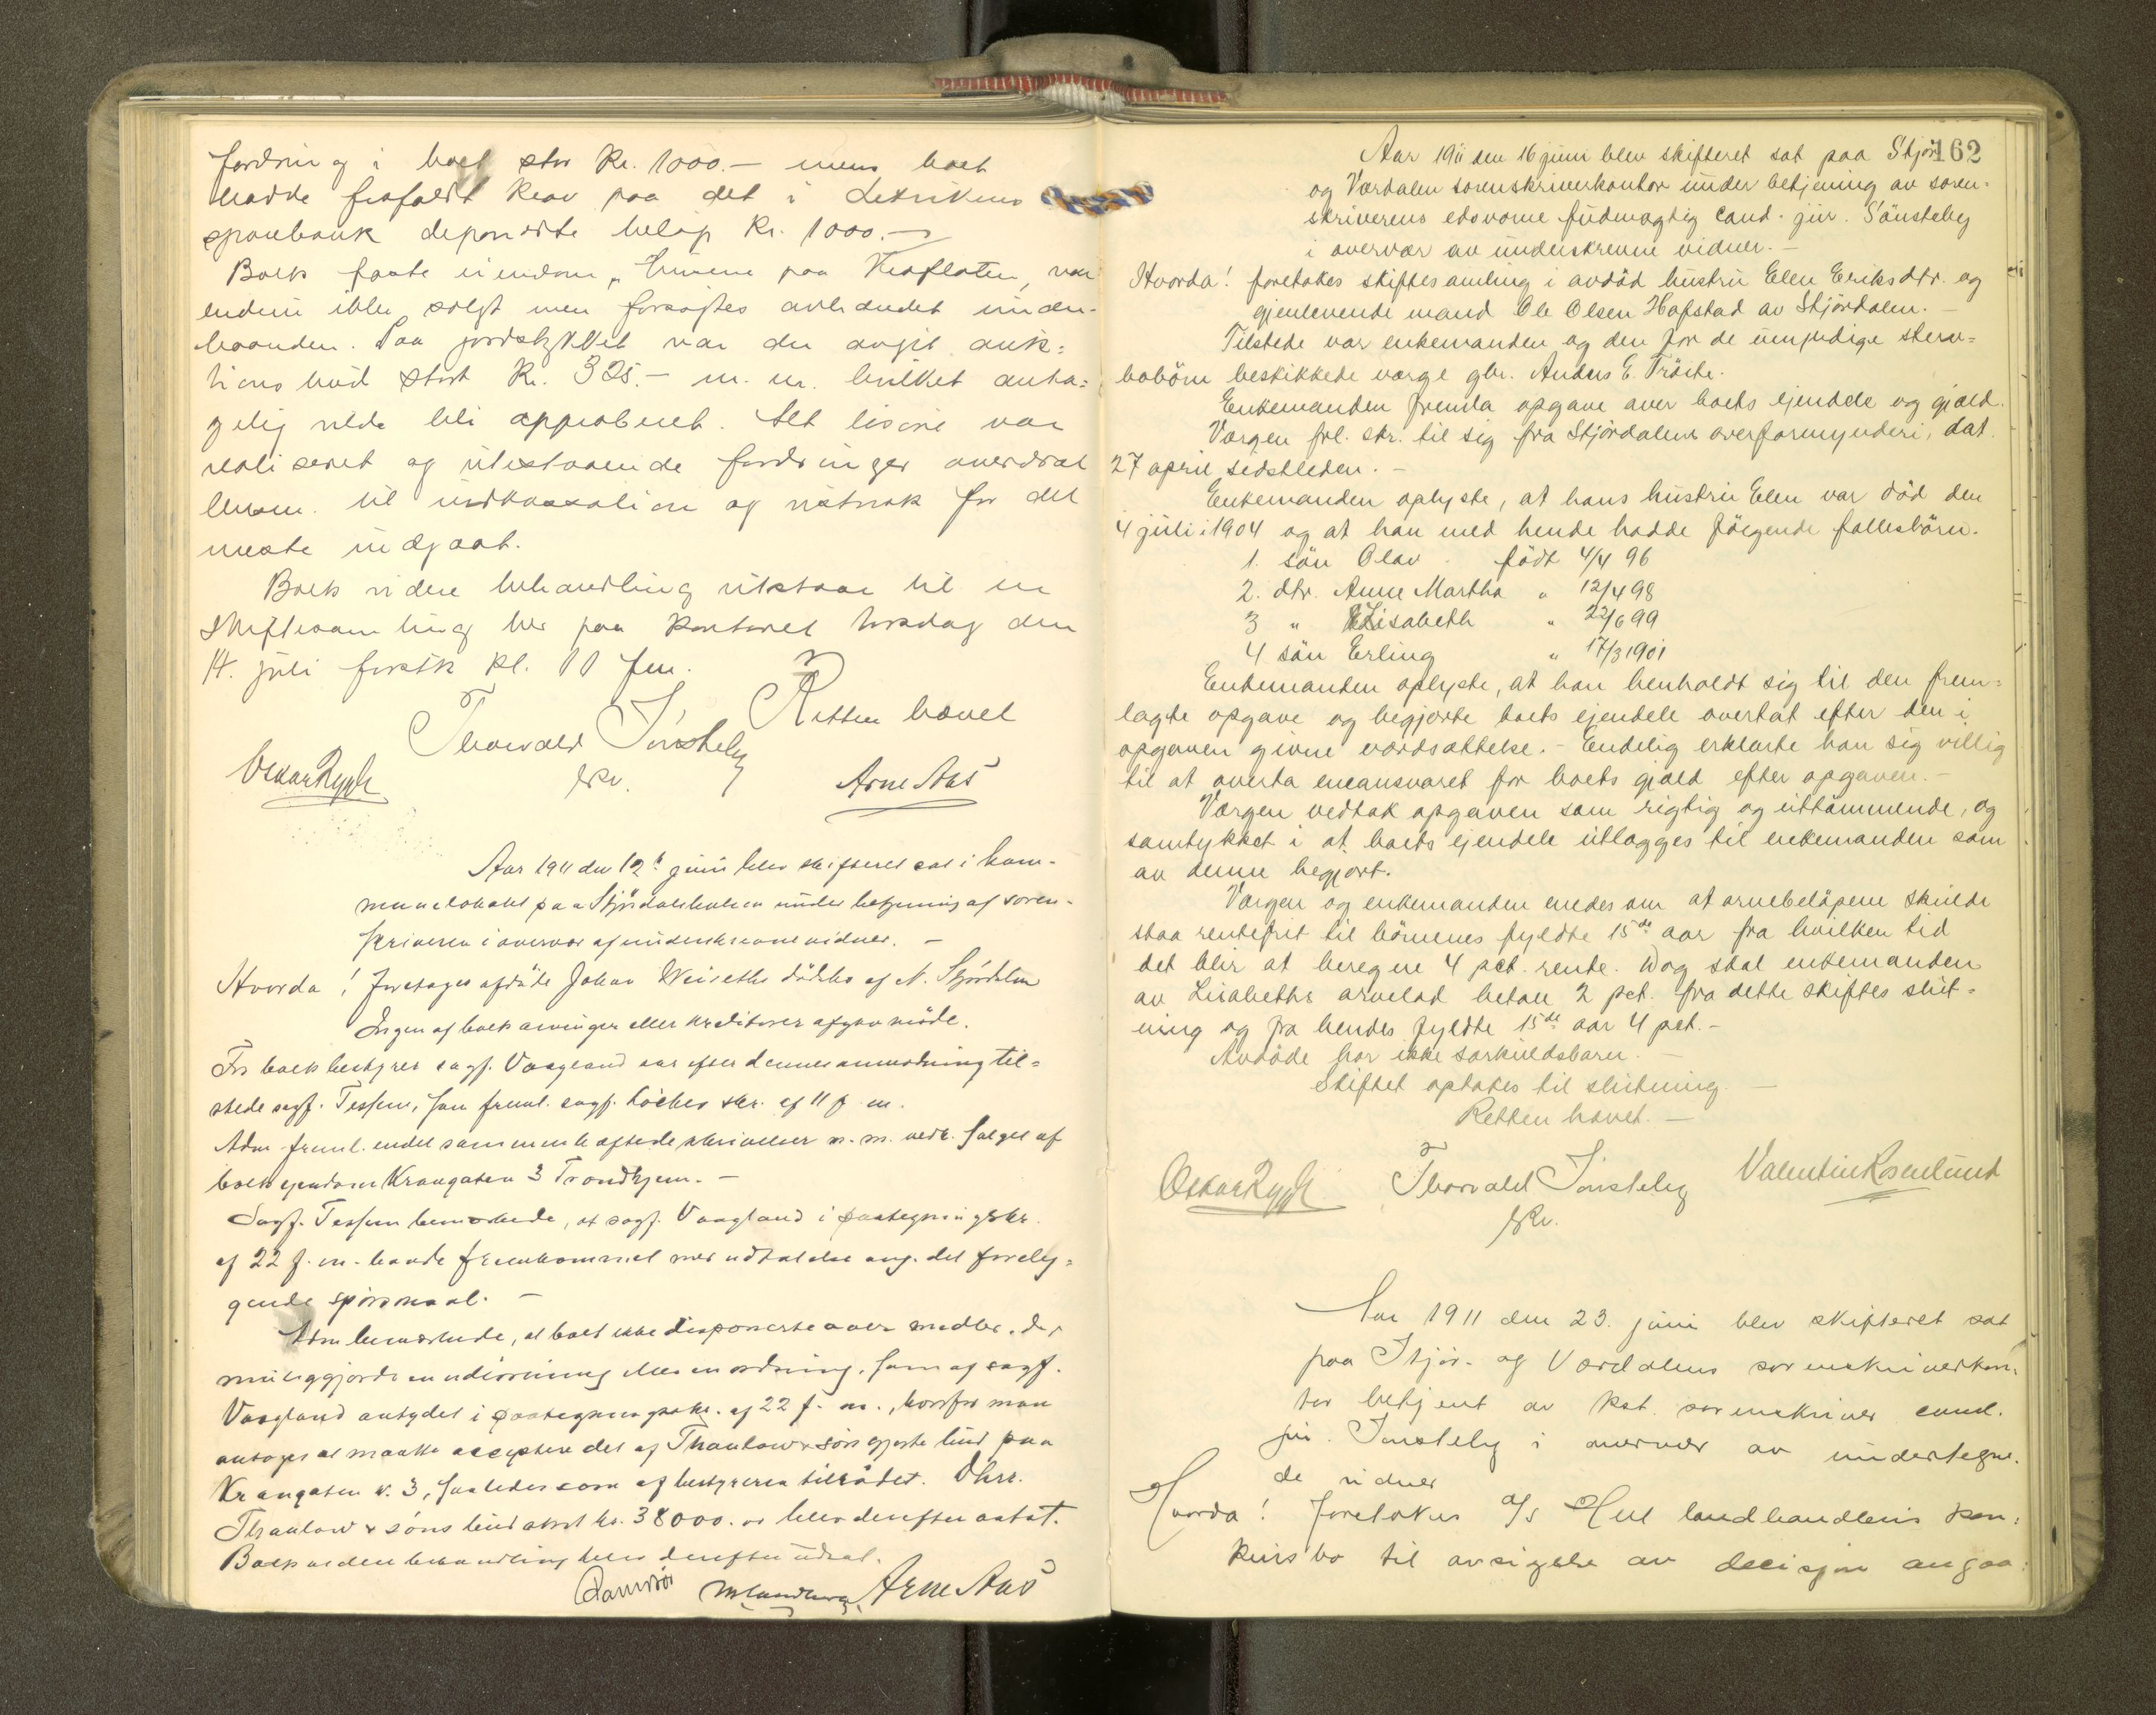 fordring i boet stor kr. 1000.– mens boet
hadde frafaldt krav paa det i Leksvikens
sparebank deponerte beløp kr. 1000.–
Boets faste eiendom, "Linene paa Kraflaten, var
endnu ikke solgt men forsøktes avhændet under-
haanden. Paa jordstykket var der avgit auk=
tions bud stort kr. 325.– m. m. hvilket anta=
gelig vilde bli approberet. Alt løsøre var
realiseret og utestaaende fordringer overdrat
lensm. til indkassation og vistnok for det
meste indgaat.
Boets videre behandling utstaar til en
skiftesamling her paa kontoret torsdag den
14. juli førstk kl. 11 fm.
Retten hævet
Thorvald Sønsteby
skv.
Oskar Rygh
Arne Aas
Aar 1911 den 12te juni blev skifteret sat i kom-
munelokalet paa Stjørdalshalsen under betjening af soren-
skriveren i overvær af underskrevne vidner. –
Hvorda! foretages afdøde Johan Weiseths dødsbo af N. Stjørdalen
Ingen af boets arvinger eller kreditorer afgav møde.
For boets bestyrer sagf. Vaagland var efter dennes anmodning til=
stede sagf. Tessem, som freml. sagf. Løchens skr. af 11 f. m.
Adm. freml. endel sammenheftede skrivelser m. m. vedk. salget af
boets ejendom Krangaten 3 Trondhjem. –
Sagf. Tessem bemærkede, at sagf. Vaagland i paategningskr.
af 22 f. m. havde fremkommet med udtalelse ang. det forelig=
gende spørsmaal. –
Adm bemærkede, at boet ikke disponerte over midler, der
muliggjorde en udløsning eller en ordning, som af sagf.
Vaagland antydet i paategningsskr. af 22 f. m., hvorfor man
antoges at maatte acceptere det af Thaulow & søn gjorte bud paa
Krangaten n. 3, saaledes som af bestyreren tilrådet. Dhrr.
Thaulow & søns bud stort kr. 38000.oo blev derefter antat.
Boets viderebehandling blev derefter udsat.
Arne Aas
162
Aar 1911 den 16 juni blev skifteret sat paa Stjør
og Værdalen sorenskriverkontor under betjening av soren-
skriverens edsvorne fuldmægtig cand. jur. Sønsteby
i overvær av underskrevne vidner. –
Hvorda! foretokes skiftesamling i avdød hustru Elen Eriksdtr. og
gjenlevende mand Ole Olsen Hofstad av Stjørdalen. –
Tilstede var enkemanden og den for de umyndige sterv=
bobørn beskikkede værge gbr. Anders E. Trøite.
Enkemanden fremla opgave over boets ejendele og gjæld.
Værgen frl. skr. til sig fra Stjørdalens overformynderi, dat.
27 april sidstleden. –
Enkemanden oplyste, at hans hustru Elen var død den
4 juli 1904 og at han med hende hadde følgende fællesbørn.
1. søn Olav født 4/4 96
2. dtr. Anne Martha " 12/4 98
3 " Elisabeth " 22/6 99
4 søn Erling " 17/3 1901
Enkemanden oplyste, at han henholdt sig til den frem=
lagte opgave og begjærte boets ejendele overtat efter den i
opgaven givne værdsættelse. – Endelig erklærte han sig villig
til at overta eneansvaret for boets gjæld efter opgaven. –
Værgen vedtok opgaven som rigtig og uttømmende, og
samtykket i at boets ejendele utlægges til enkemanden som
av denne begjært.
Værgen og enkemanden enedes om at arvebeløpene skulde
staa rentefrit til børnenes fyldte 15de aar fra hvilken tid
det blir at beregne 4 pct. rente. Dog skal enkemanden
av Lisabeths arvelod betale 2 pct. fra dette skiftes slut=
ning og fra hendes fyldte 15de aar 4 pct. –
Avdøde har ikke særkuldsbarn. –
Skiftet optokes til slutning. –
Retten hævet. –
Oskar Rygh
Thorvald Sønsteby
skv.
Valentin Rosenlund
Aar 1911 den 23. juni blev skifteret sat
paa Stjør- og Værdalens sorenskriverkon=
tor betjent av kst. sorenskriver cand.
jur. Sønsteby i overvær av undertegne-
de vidner
Hvorda! foretokes A/S Hell landhandleris kon=
kursbo til avsigelse av decisjon angaa=